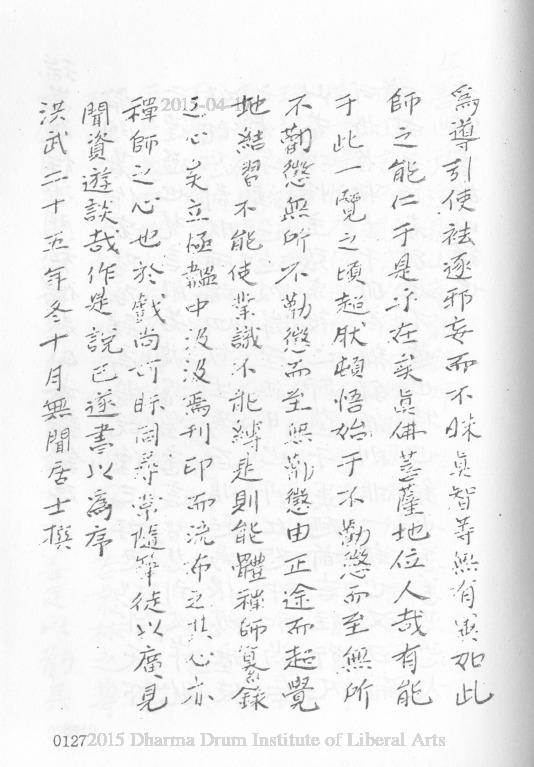 為導引使袪逐邪妄而不昧真智等無有異如此
師之能仁于是乎在矣真佛菩薩地位人哉有能
于此一覽之頃超肰頓悟始于不勸懲而至無所
不勸懲無所不勸懲而至無勸懲由正途而超覺
地結習不能使業識不能縛是則能體禪師纂錄
之心矣立極韞中汲汲焉刊印而流布之其心亦
禪師之心也於戲尚可眎同尋常隨筆徒以廣見
聞資遊談哉作是說已遂書以為序
洪武二十五年冬十月無聞居士撰
2015-04-1
0127
2015 Dharma Drum Institute of Liberal Arts